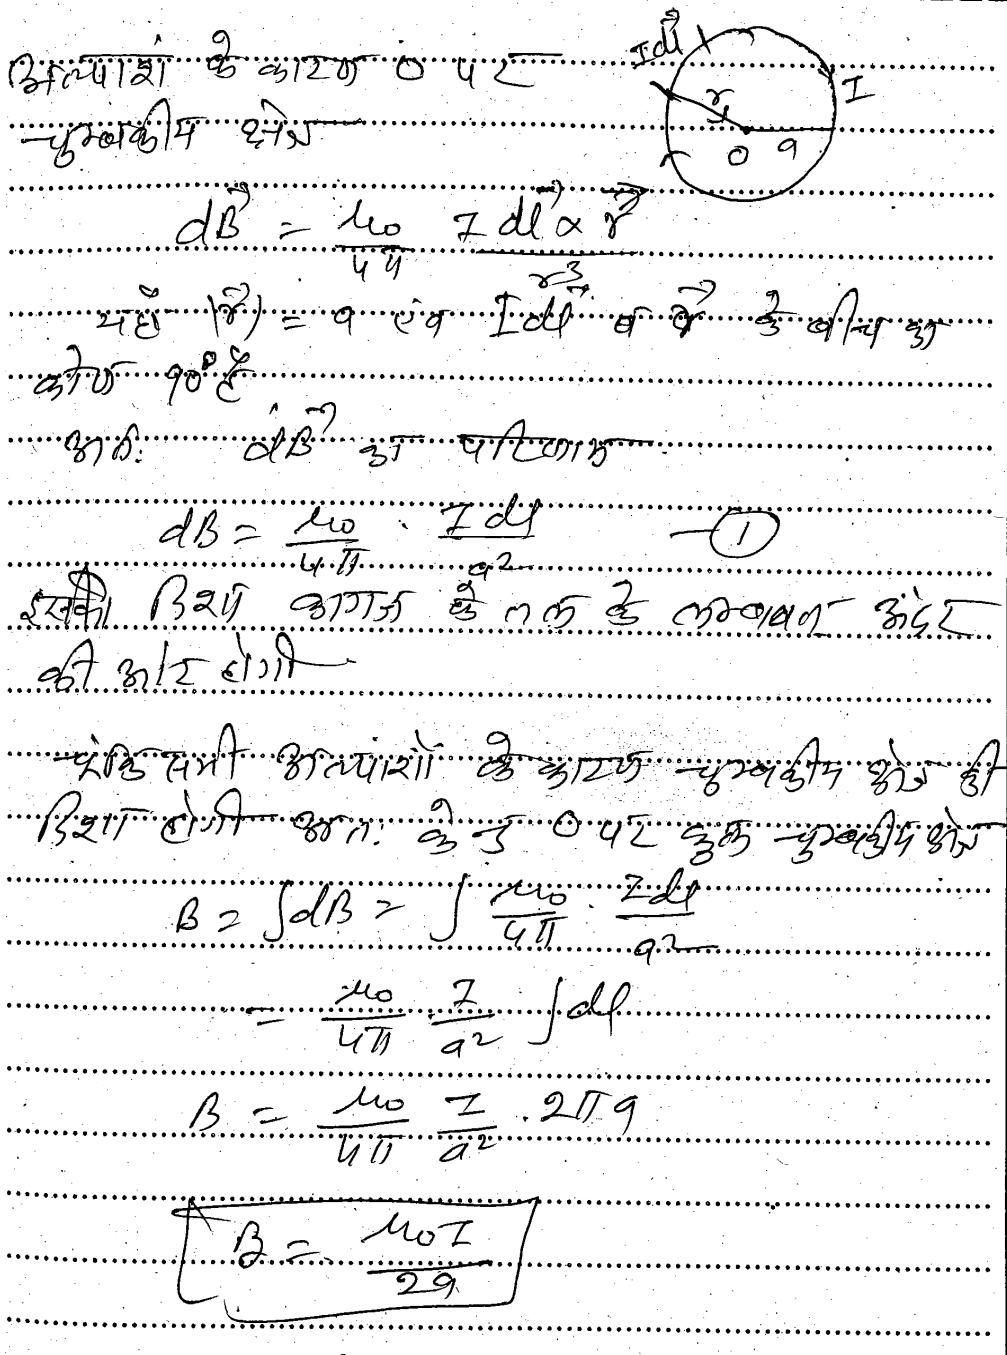 अल्पांश के कारण O पर
चुम्बकीय क्षेत्र
I dl⃗
I
r
O a
dB⃗ = μ₀/4π I dl⃗ × r⃗ / r³
यहाँ |r⃗| = a एवं I dl⃗ व r⃗ के बीच का
कोण 90° है
अतः dB⃗ का परिमाण
dB = μ₀/4π . I dl / a² — ①
इसकी दिशा कागज के तल के लम्बवत अंदर
की ओर होगी
चूंकि सभी अल्पांशों के कारण चुम्बकीय क्षेत्र की
दिशा होगी अतः केन्द्र O पर कुल चुम्बकीय क्षेत्र
B = ∫dB = ∫ μ₀/4π . I dl / a²
= μ₀/4π I/a² ∫dl
B = μ₀/4π I/a² . 2πa
B = μ₀I / 2a